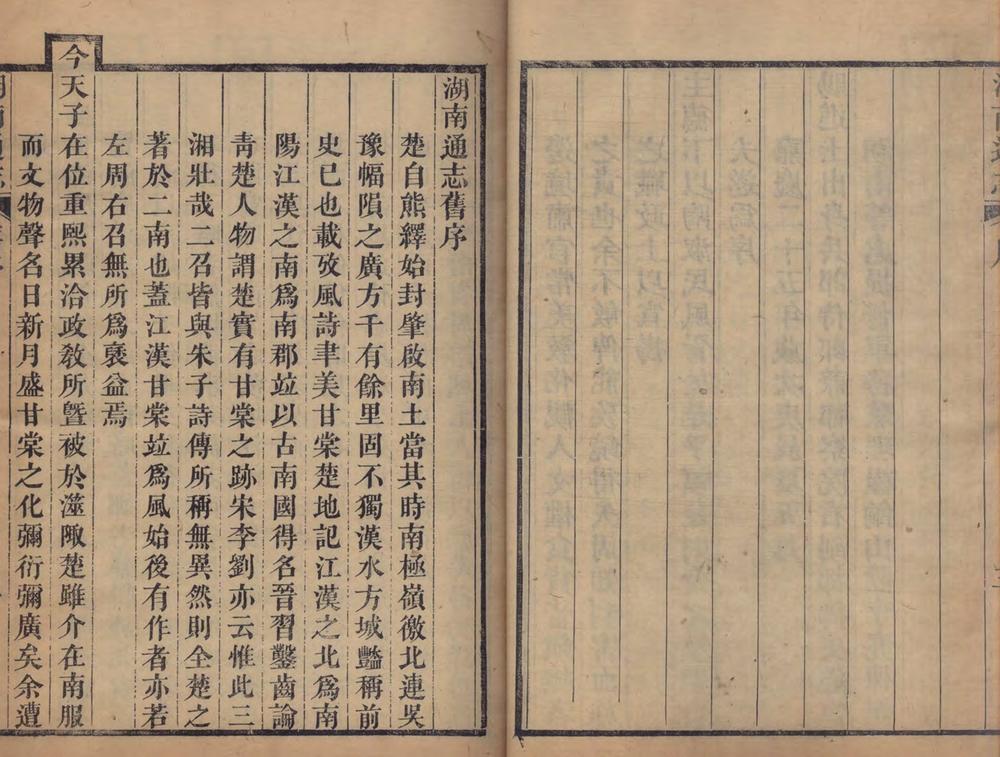 湖南通志舊序
楚自熊繹始封肇啟南土當其時南極嶺徼北連吳
豫幅隕之廣方千有餘里固不獨漢水方城豔稱前
史已也載攷風詩聿美甘棠楚地記江漢之北爲南
陽江漢之南爲南郡竝以古南國得名晉習鑿齒論
靑楚人物謂楚實有甘棠之跡宋李劉亦云惟此三
湘壯哉二召皆與朱子詩傳所稱無異然則全楚之
著於二南也蓋江漢甘棠竝爲風始後有作者亦若
左周右召無所爲襃益焉
今天子在位重熙累洽政敎所曁被於遐陬楚雖介在南服
而文物聲名日新月盛甘棠之化彌衍彌廣矣余遭